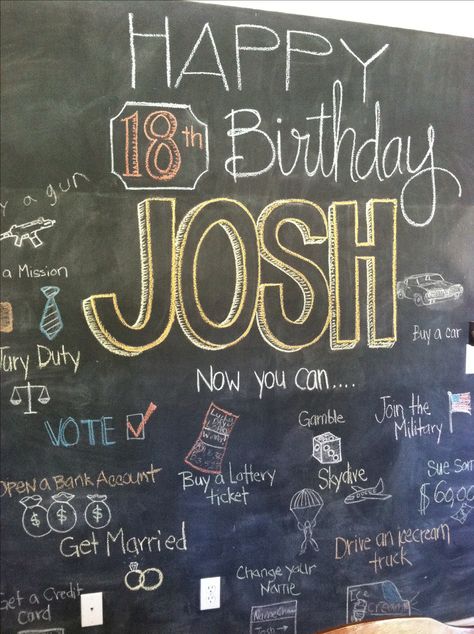 HAPPY
18th Birthday
JOSH
y a gun
a Mission
Buy a car
Jury Duty
Now you can....
VOTE
Gamble
Join the
Military
Open a Bank Account
Buy a Lottery
ticket
Skydive
Sue som
$60,00
Get Married
Drive an icecream
truck
Change your
Name
Get a Credit
Card
Ice
Cream